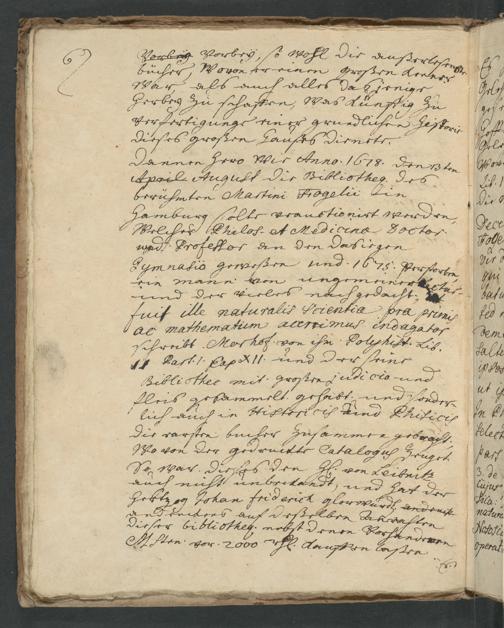 6)
Vorbey vorbey, so wohl die außerlesenste
bücher, wovon er einen großen Kenner
war, als auch alles dasjenige
herbey zu schaffen, was künftig zu
verfertigung einer gründlichen Historie
dieses großen Hauses dienete.
Dannenhero wie Anno. 1678. den
April August die Bibliotheq. des
berühmten Martini Fogelii in
Hamburg solte verauctionirt werden,
Welcher Philos. et Medicinæ Doctor
und Professor an den dasigen
Gymnasio gewesen und 1675. verstorben,
ein mann von ungemeiner
und der vieles nachgedacht,
fuit ille naturalis scientiæ præ primis
ac mathematum acerrimus indagator
schreibt Morhof von ihn Polyhist. Lib.
II Part. I. Cap. XII. und der seine
Bibliothec mit großen judicio und
fleis gesammelt gehabt, und sonder-
lich auch in Historicis und Philicis
die rarsten bucher zusammen gebracht.
Wovon der gedruckte Catalogus zeuget
So war dieses den H. von Leibnitz
auch nicht unbekandt, und hat der
Hertzog Johan Friderich glorwürd.
andenckens auf deßelben
dieser bibliotheq. nebst denen vorhandenen
MSten. vor 2000 rthl. kauffen laßen